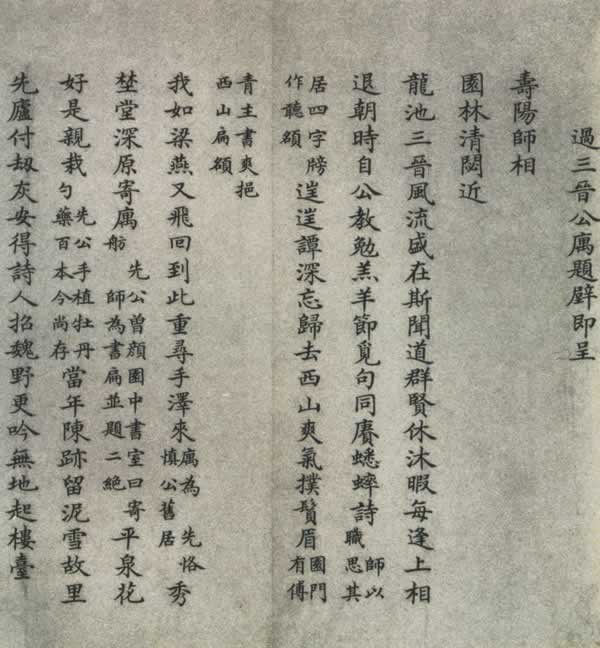 過三晉公庽題壁即呈
壽陽師相
園林清閟近
龍池三晉風流盛在斯聞道群賢休沐暇每逢上相
退朝時自公教勉羔羊節覓句同賡蟋蟀詩師以職思其
居四字牓作聽額往往譚深忘歸去西山爽氣撲鬢眉園門有傅
青主書爽挹西山扁額
我如梁燕又飛回到此重尋手澤來庽為先恪慎公舊居秀
埜堂深原寄庽先公曾顏園中書室曰寄舫師為書扁並題二絕平泉花
好是親栽先公手植牡丹勺藥百本今尚存當年陳跡留泥雪故里
先廬付劫灰安得詩人招魏野更吟無地起樓臺